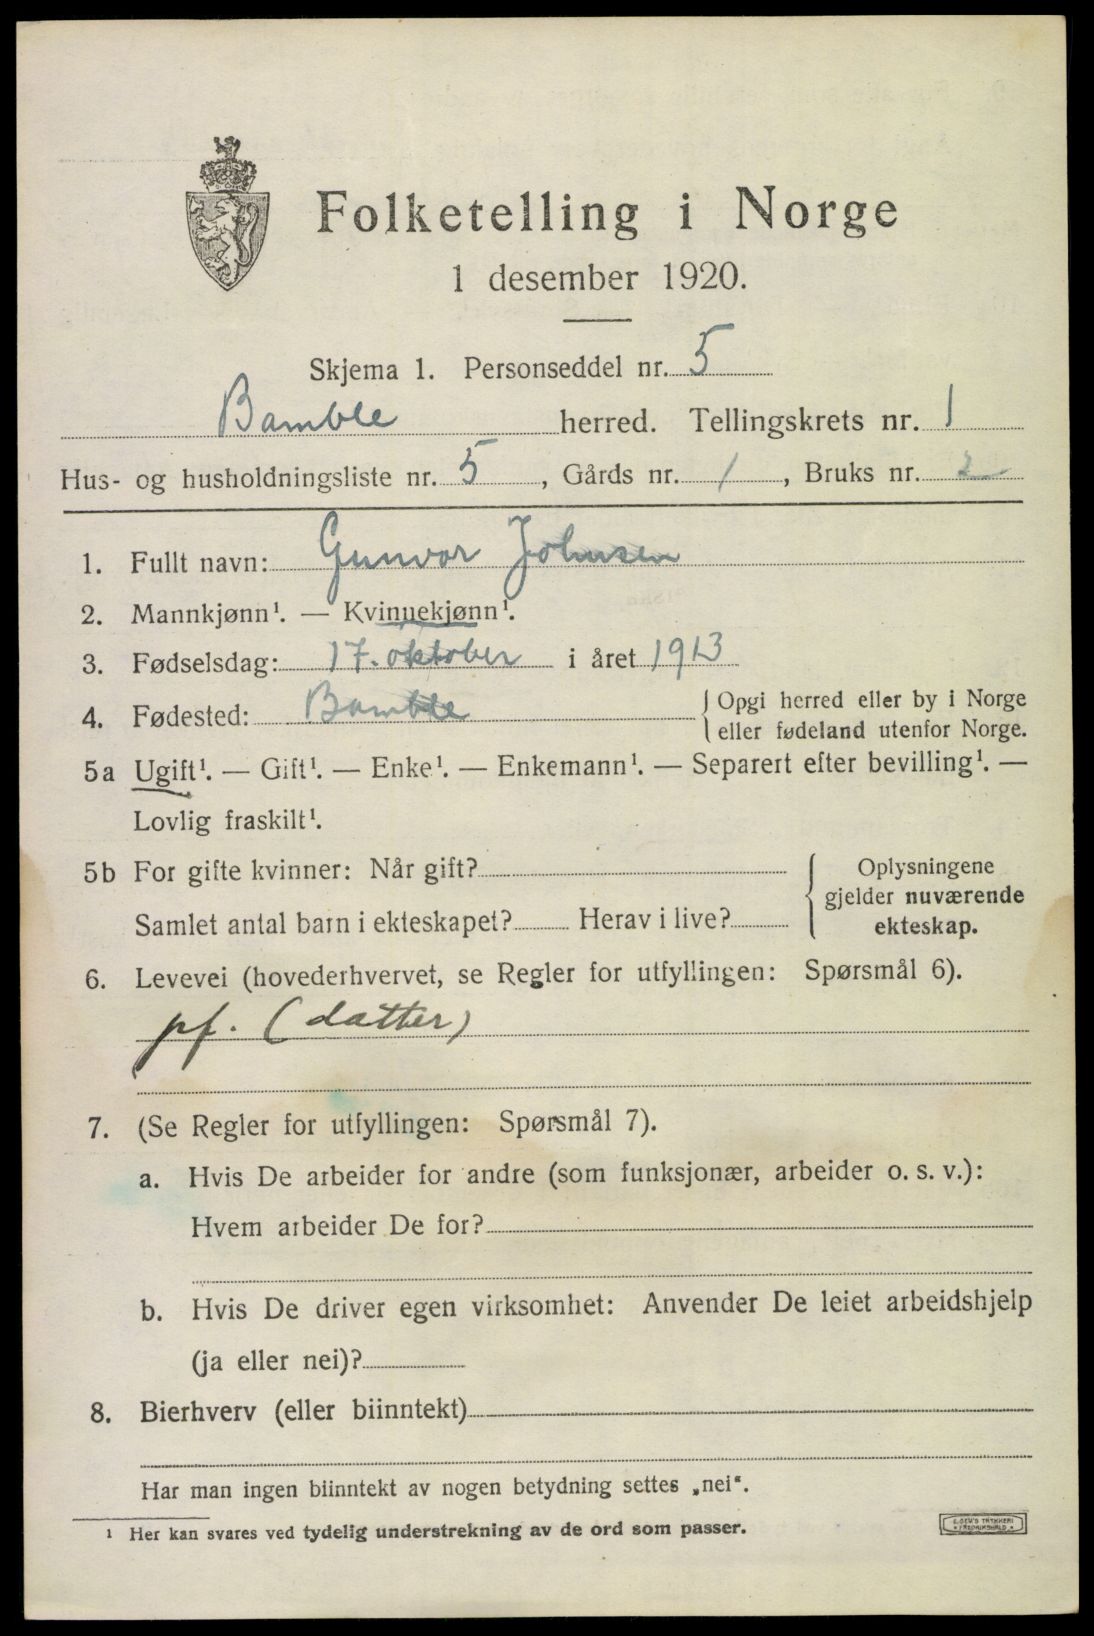 Folketelling i Norge
1 desember 1920.
Skjema 1. Personseddel nr. 5
Bamble herred. Tellingskrets nr. 1
Hus- og husholdningsliste nr. 5, Gårds nr. 1, Bruks nr. 2
1. Fullt navn: Gunvor Johnsen
2. Mannkjønn¹. — Kvinnekjønn¹.
3. Fødselsdag: 17. oktober i året 1913
4. Fødested: Bamble { Opgi herred eller by i Norge
eller fødeland utenfor Norge.
5a Ugift¹. — Gift¹. — Enke¹. — Enkemann¹. — Separert efter bevilling¹. —
Lovlig fraskilt¹.
5b For gifte kvinner: Når gift?
Samlet antal barn i ekteskapet? Herav i live?
{ Oplysningene
gjelder nuværende
ekteskap.
6. Levevei (hovederhvervet, se Regler for utfyllingen: Spørsmål 6).
pf. (datter)
7. (Se Regler for utfyllingen: Spørsmål 7).
a. Hvis De arbeider for andre (som funksjonær, arbeider o. s. v.):
Hvem arbeider De for?
b. Hvis De driver egen virksomhet: Anvender De leiet arbeidshjelp
(ja eller nei)?
8. Bierhverv (eller biinntekt)
Har man ingen biinntekt av nogen betydning settes „nei“.
¹ Her kan svares ved tydelig understrekning av de ord som passer.